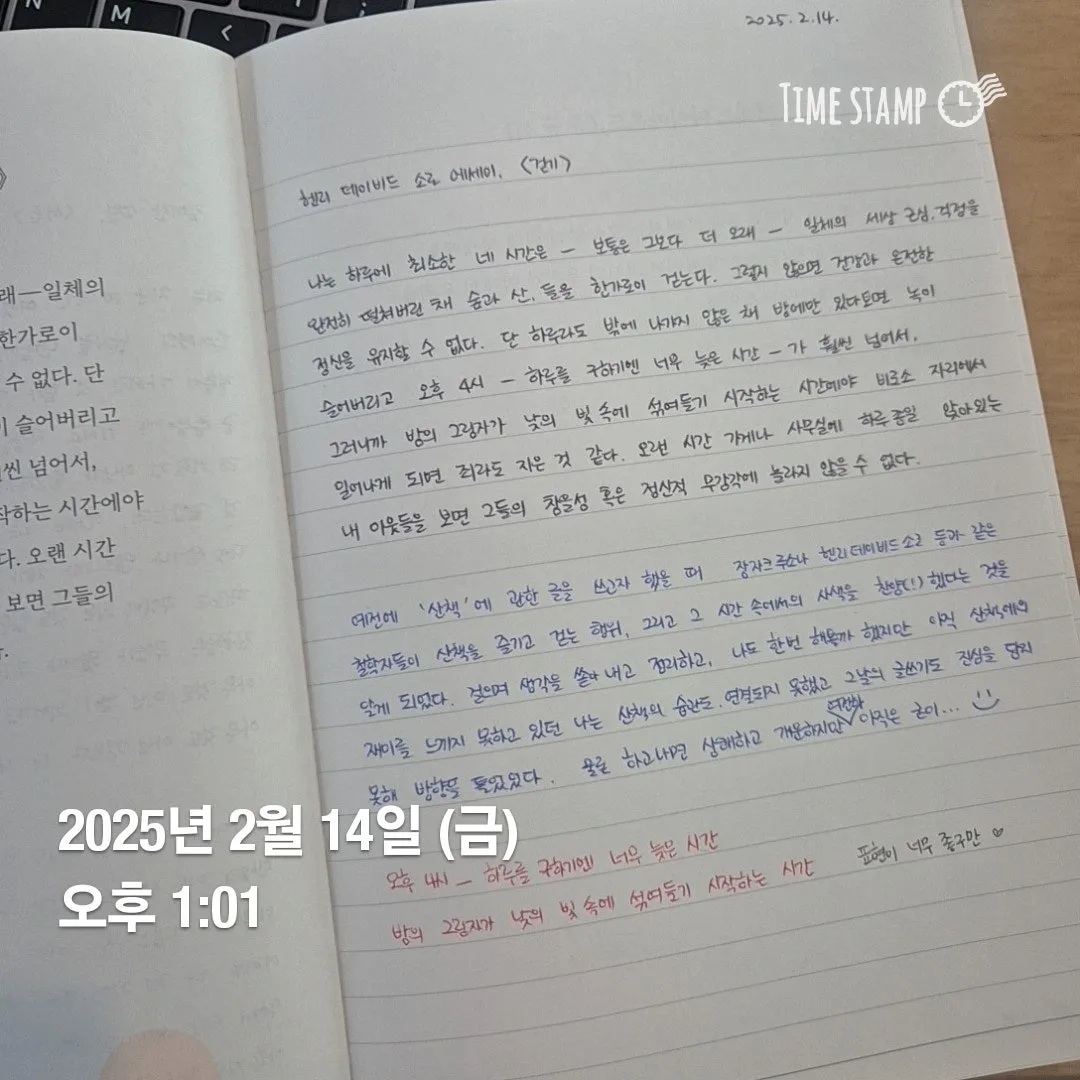 N
M
<
2025. 2. 14.
TIME STAMP
헨리 데이비드 소로 에세이. <걷기>
나는 하루에 최소한 네 시간은 — 보통은 그보다 더 오래 — 일체의 세상 근심, 걱정을
완전히 떨쳐버린 채 숲과 산, 들을 한가로이 걷는다. 그렇지 않으면 건강과 온전한
정신을 유지할 수 없다. 단 하루라도 밖에 나가지 않은 채 방에만 있다보면 녹이
슬어버리고 오후 4시 — 하루를 구하기엔 너무 늦은 시간 — 가 훨씬 넘어서,
그러니까 밤의 그림자가 낮의 빛 속에 섞여들기 시작하는 시간에야 비로소 자리에서
일어나게 되면 죄라도 지은 것 같다. 오랜 시간 가게나 사무실에 하루종일 앉아있는
내 이웃들을 보면 그들의 참을성 혹은 정신적 무감각에 놀라지 않을 수 없다.
예전에 '산책'에 관한 글을 쓰고자 했을 때 장자크루소나 헨리데이비드소로 등과 같은
철학자들이 산책을 즐기고 걷는 행위, 그리고 그 시간 속에서의 사색을 찬양(!)했다는 것을
알게 되었다. 걸으며 생각을 쏟아내고 정리하고, 나도 한번 해볼까 했지만 아직 산책에의
재미를 느끼지 못하고 있던 나는 산책의 습관도 연결되지 못했고 그날의 글쓰기도 진심을 담지
못해 방향을 틀었었다. 물론 하고나면 상쾌하고 개운하지만 여전히 아직은 굳이... :)
오후 4시 — 하루를 구하기엔 너무 늦은 시간
밤의 그림자가 낮의 빛 속에 섞여들기 시작하는 시간 표현이 너무 좋구만 ♡
래—일체의
한가로이
수 없다. 단
이 슬어버리고
씬 넘어서,
작하는 시간에야
다. 오랜 시간
보면 그들의
2025년 2월 14일 (금)
오후 1:01